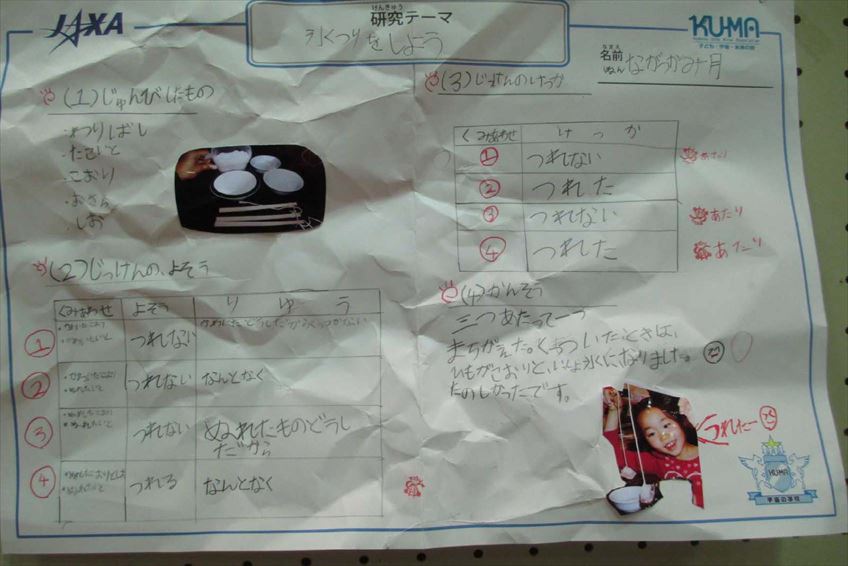 JAXA
けんきゅう
研究テーマ
氷つりをしよう
KUMA
子ども・宇宙・未来の会
なまえ
名前
(1)じゅんびしたもの
・たこいと
・こおり
・おさら
・しお
(2)じっけんの、よそう
くみあわせ よそう りゆう
① つれない
② つれない なんとなく
③ つれない ぬれたものどうし
だから
④ つれる なんとなく
(3)じっけんのけっか
くみあわせ けっか
① つれない あたり
② つれた
③ つれない あたり
④ つれた あたり
(4)かんそう
三つあたって一つ
まちがえた。くっついたときは、
ひもがこおりと、いっしょに氷になりました。
たのしかったです。
つれたー
KUMA
宇宙の学校